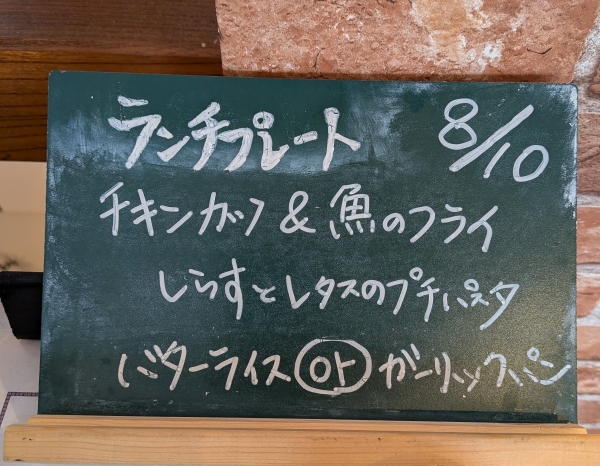 ランチプレート 8/10
チキンカツ & 魚のフライ
しらすとレタスのプチパスタ
バターライス or ガーリックパン